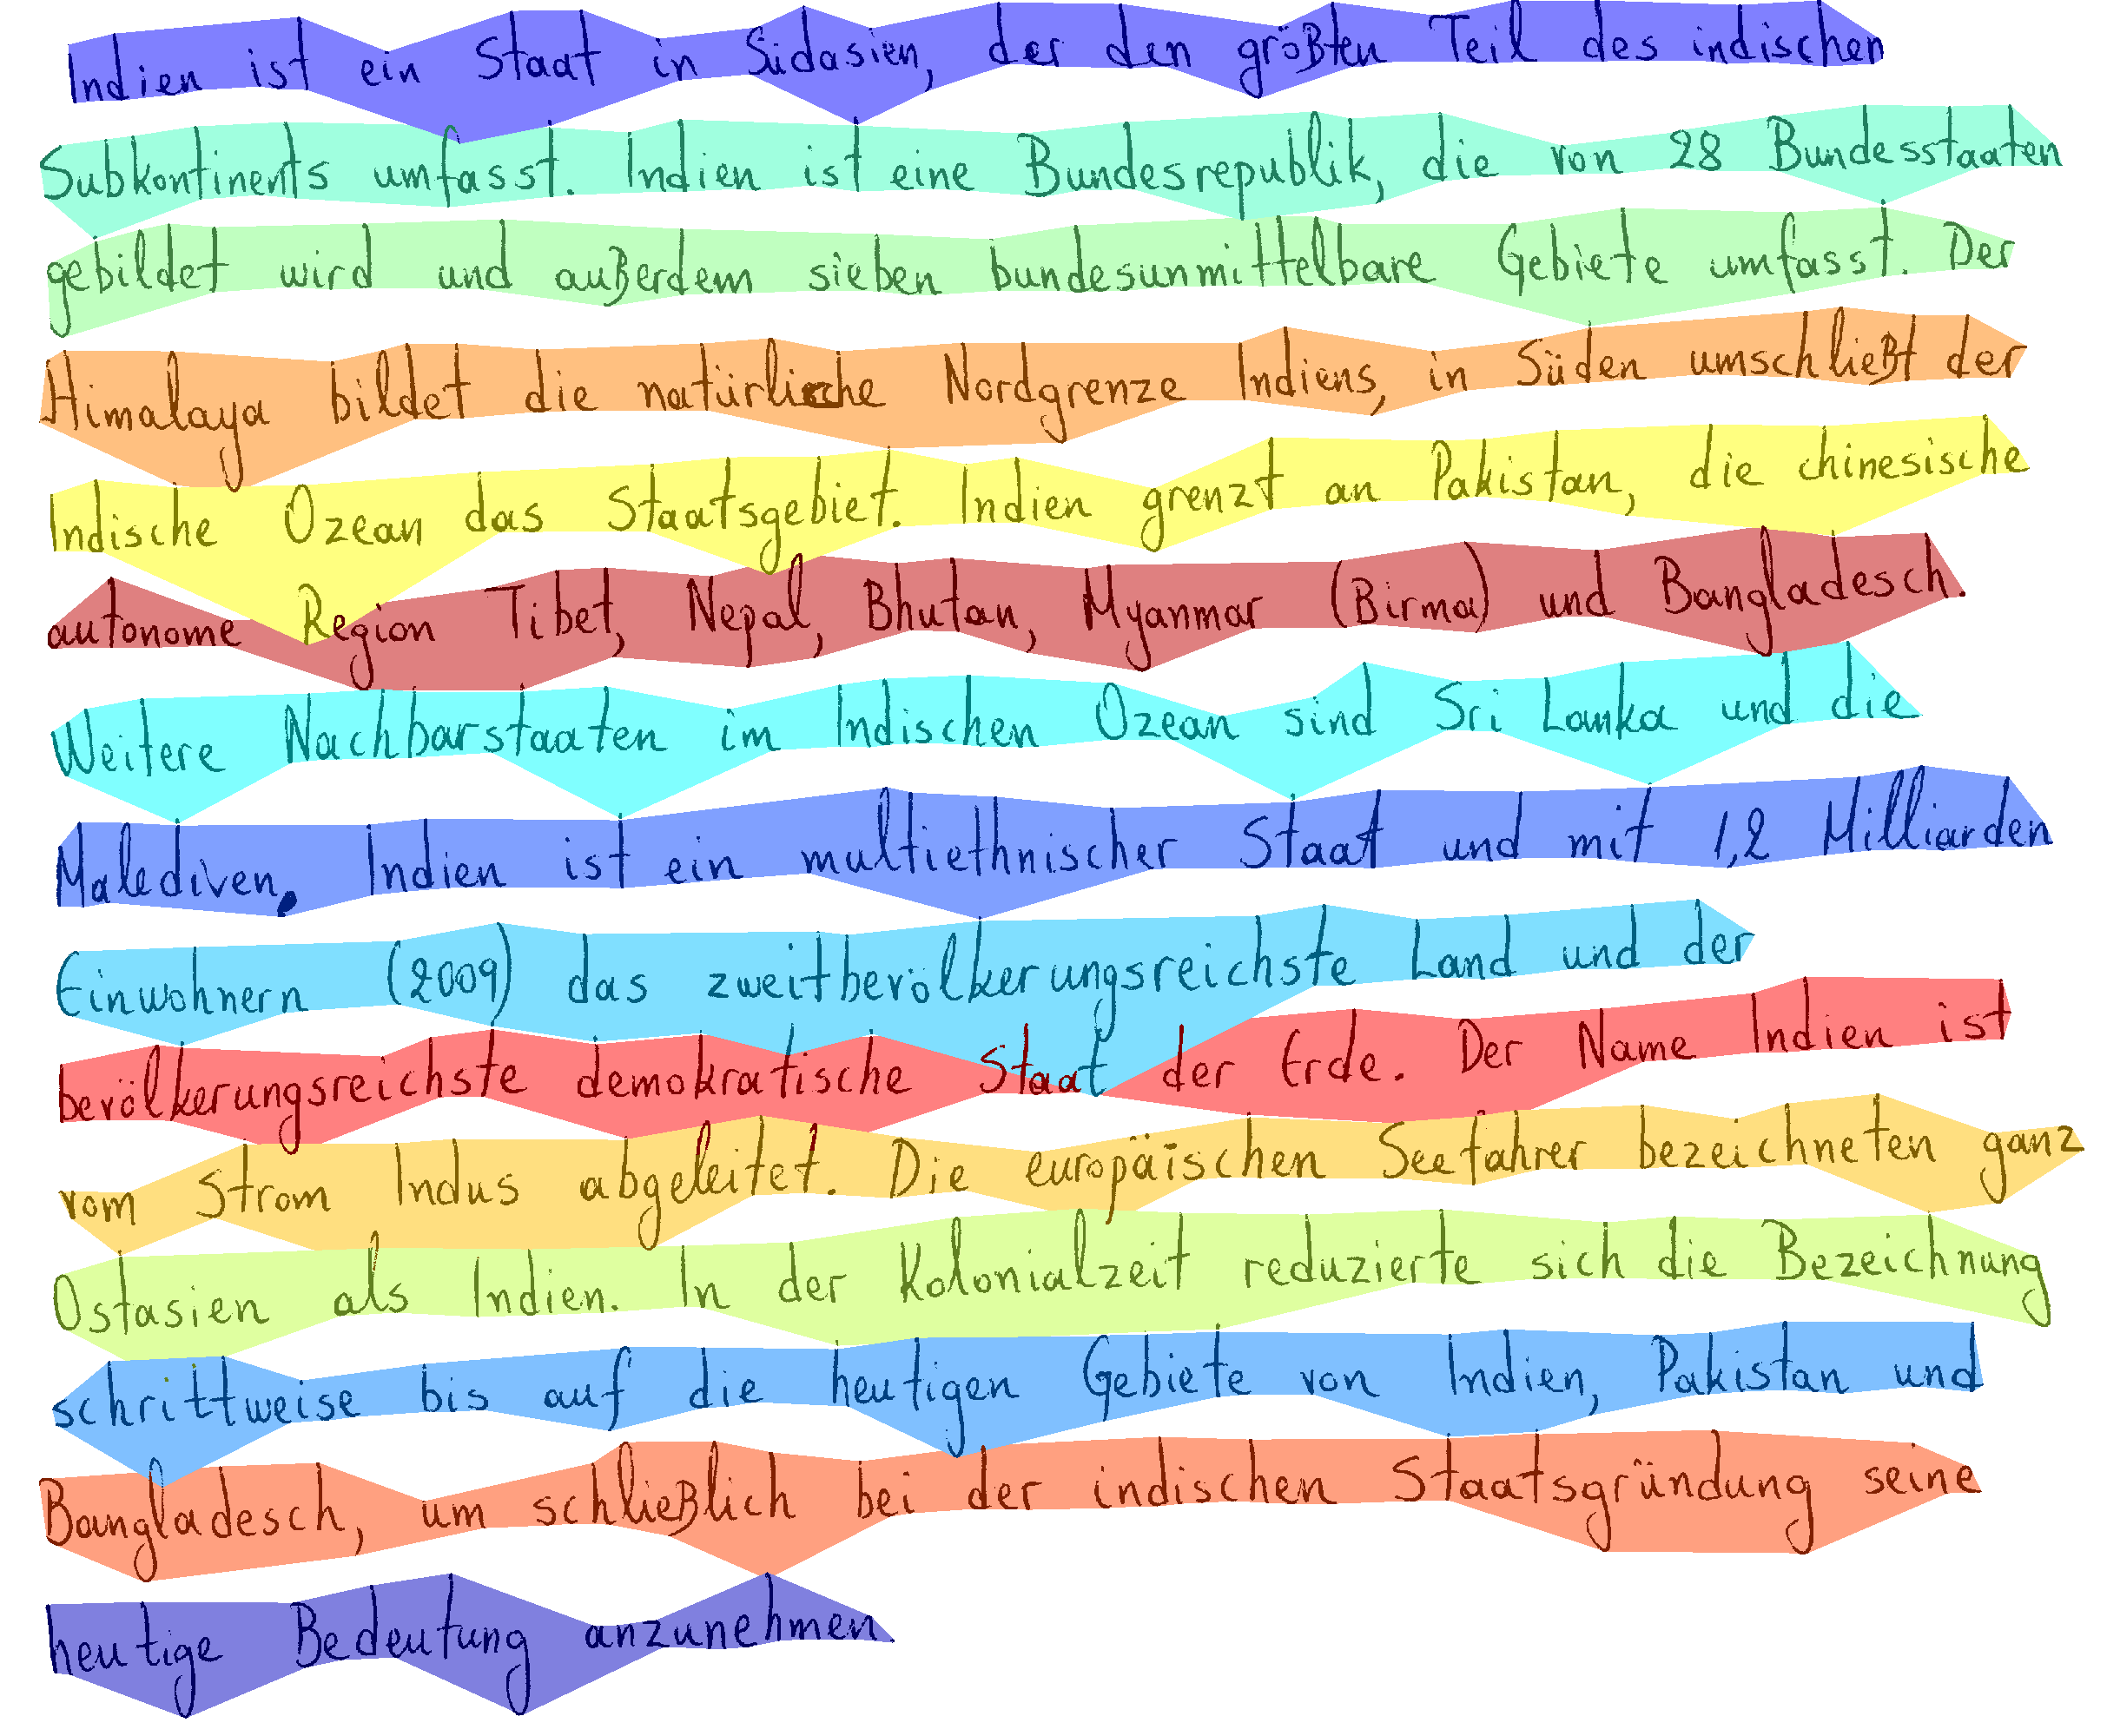 Indien ist ein Staat in Südasien, der den größten Teil des indischen
Subkontinents umfasst. Indien ist eine Bundesrepublik, die von 28 Bundesstaaten
gebildet wird und außerdem sieben bundesunmittelbare Gebiete umfasst. Der
Himalaya bildet die natürliche Nordgrenze Indiens, in Süden umschließt der
Indische Ozean das Staatsgebiet. Indien grenzt an Pakistan, die chinesische
autonome Region Tibet, Nepal, Bhutan, Myanmar (Birma) und Bangladesch.
Weitere Nachbarstaaten im Indischen Ozean sind Sri Lanka und die
Malediven. Indien ist ein multiethnischer Staat und mit 1,2 Milliarden
Einwohnern (2009) das zweitbevölkerungsreichste Land und der
bevölkerungsreichste demokratische Staat der Erde. Der Name Indien ist
vom Strom Indus abgeleitet. Die europäischen Seefahrer bezeichneten ganz
Ostasien als Indien. In der Kolonialzeit reduzierte sich die Bezeichnung
schrittweise bis auf die heutigen Gebiete von Indien, Pakistan und
Bangladesch, um schließlich bei der indischen Staatsgründung seine
heutige Bedeutung anzunehmen